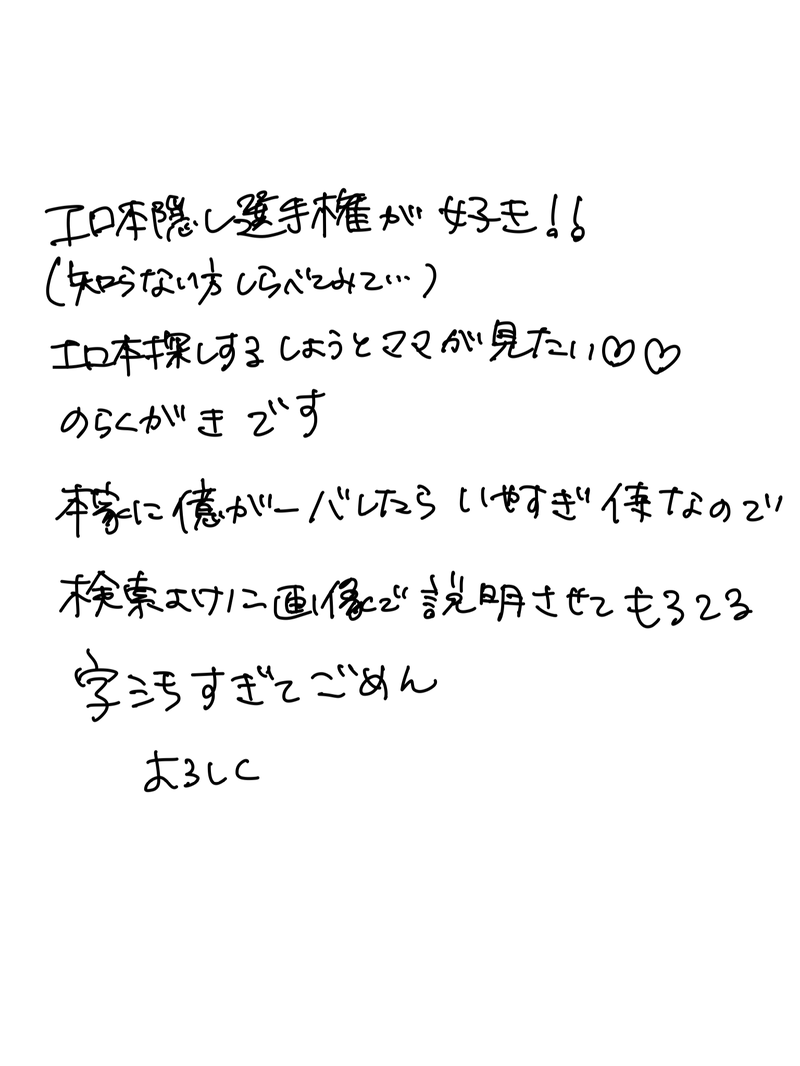 エロ本隠し選手権が好き!!
(知らない方しらべてみて…)
エロ本探しするしようとママが見たい♡♡
のらくがきです
本家に億が一バレたらいやすぎ侍なので
検索よけに画像で説明させてもろてる
字汚すぎてごめん
よろしく